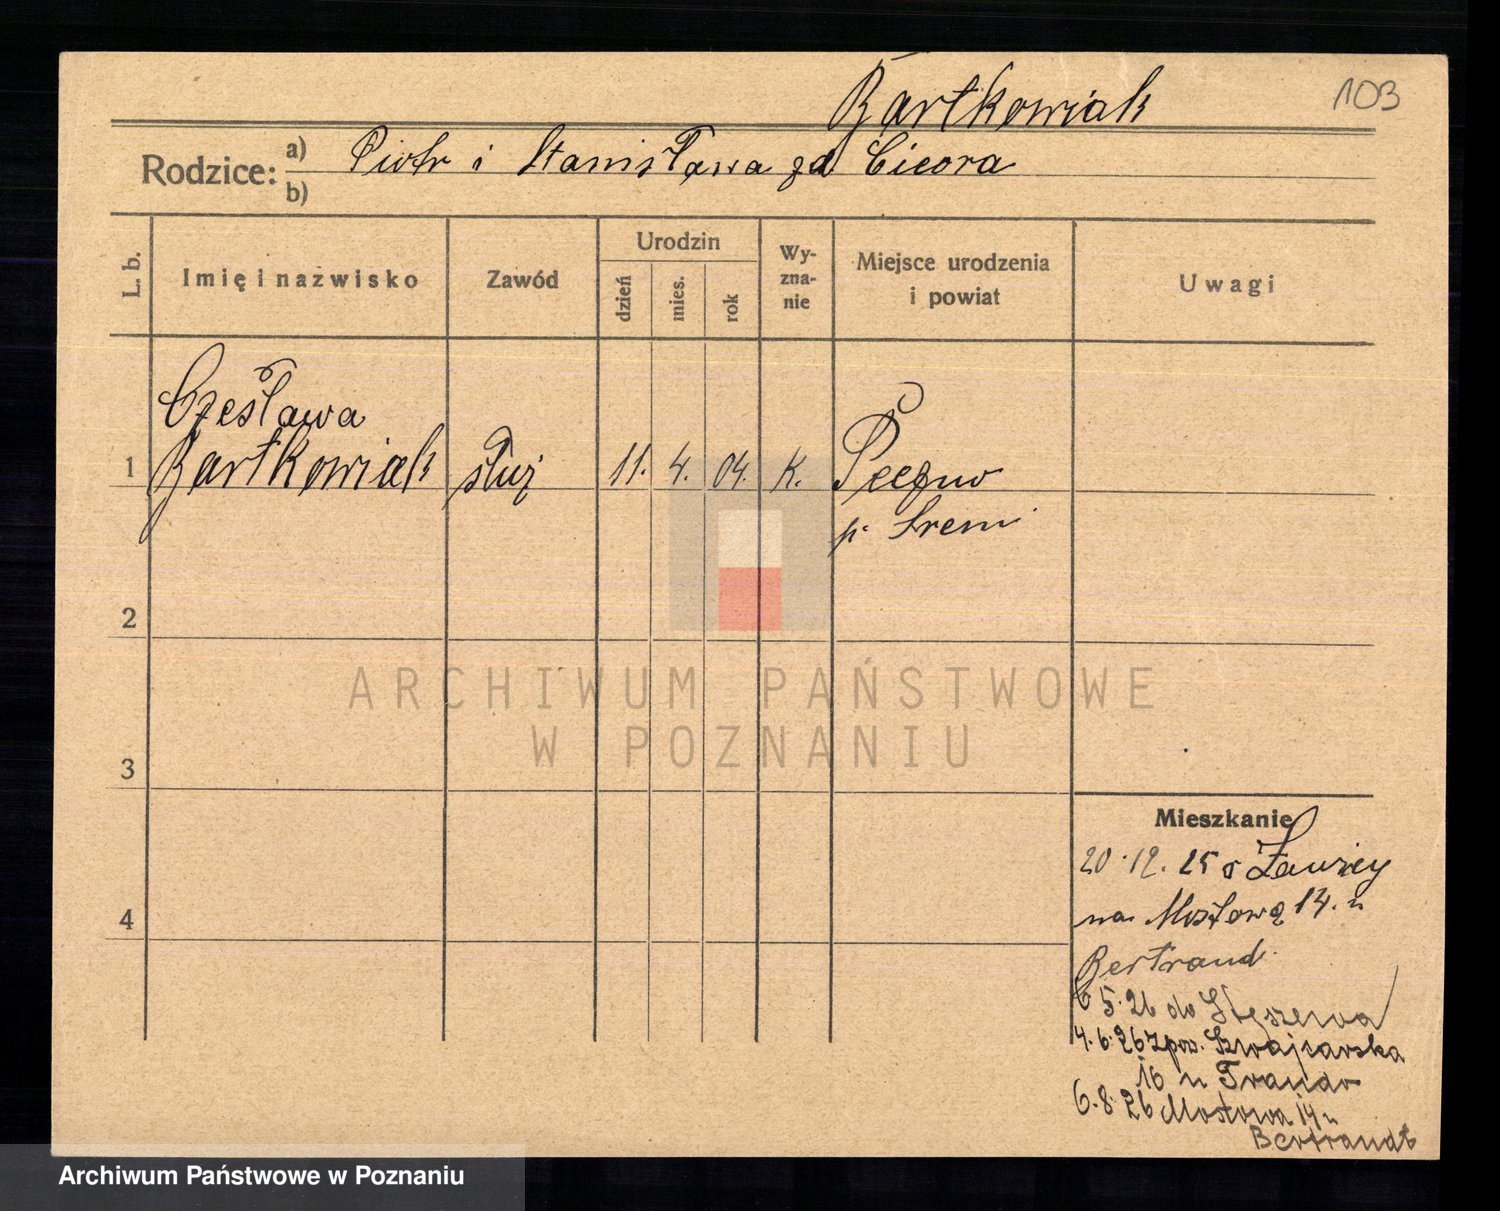 Bartkowiak
103
Rodzice: a) Piotr i Stanisława zd Cicora
b)
L. b.
Imię i nazwisko
Zawód
Urodzin
dzień
mies.
rok
Wy-
zna-
nie
Miejsce urodzenia
i powiat
Uwagi
Czesława
1 Bartkowiak służ 11. 4. 04. K. Pecgno
p. Srem
2
ARCHIWUM PAŃSTWOWE
W POZNANIU
3
Mieszkanie
20.12.25
na Mostową 14. u
4
Bertrand.
6 5.26 do Stęszewa
4.6.26 z pow. Szwajcarska
16 u
6.8.26 Mostowa 14 u
Bertrandt
Archiwum Państwowe w Poznaniu